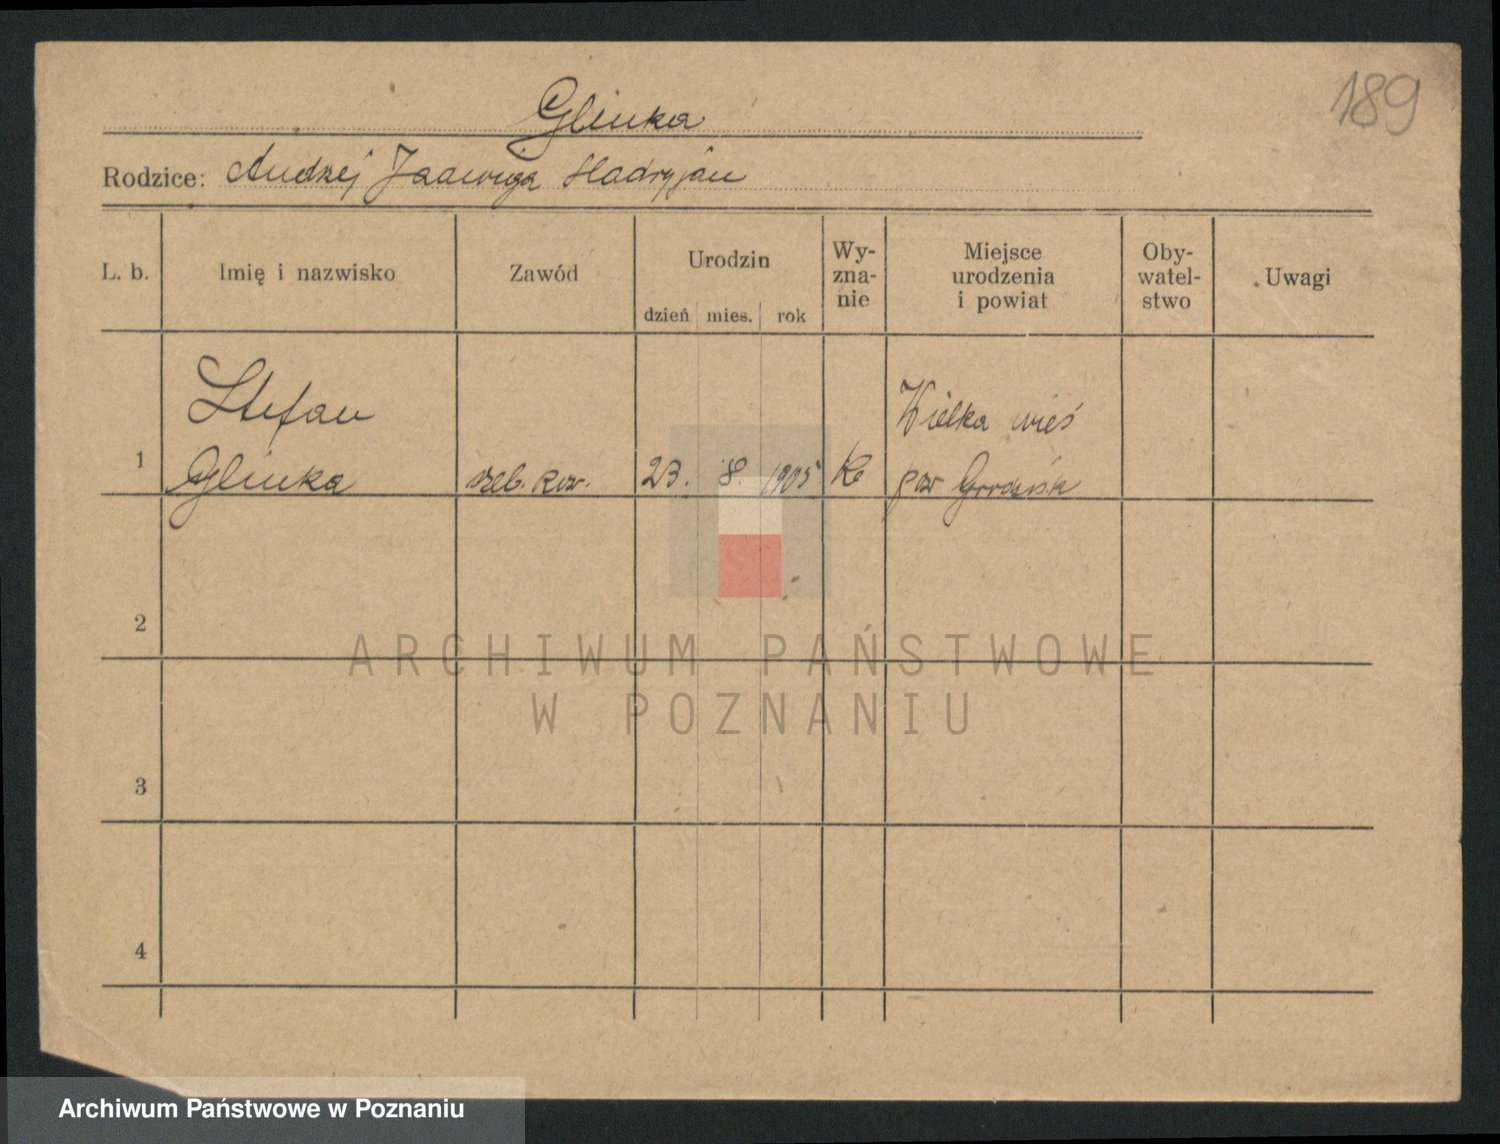 189
Glinka
Rodzice: Andrzej Jadwiga Hadryjan
L. b. Imię i nazwisko Zawód Urodzin dzień mies. rok Wy-zna-nie Miejsce urodzenia i powiat Oby-watel-stwo Uwagi
Stefan Wielka wieś
1 Glinka 23. 8. 1905 K pow Grodzisk
2
ARCHIWUM PAŃSTWOWE
W POZNANIU
3
4
Archiwum Państwowe w Poznaniu